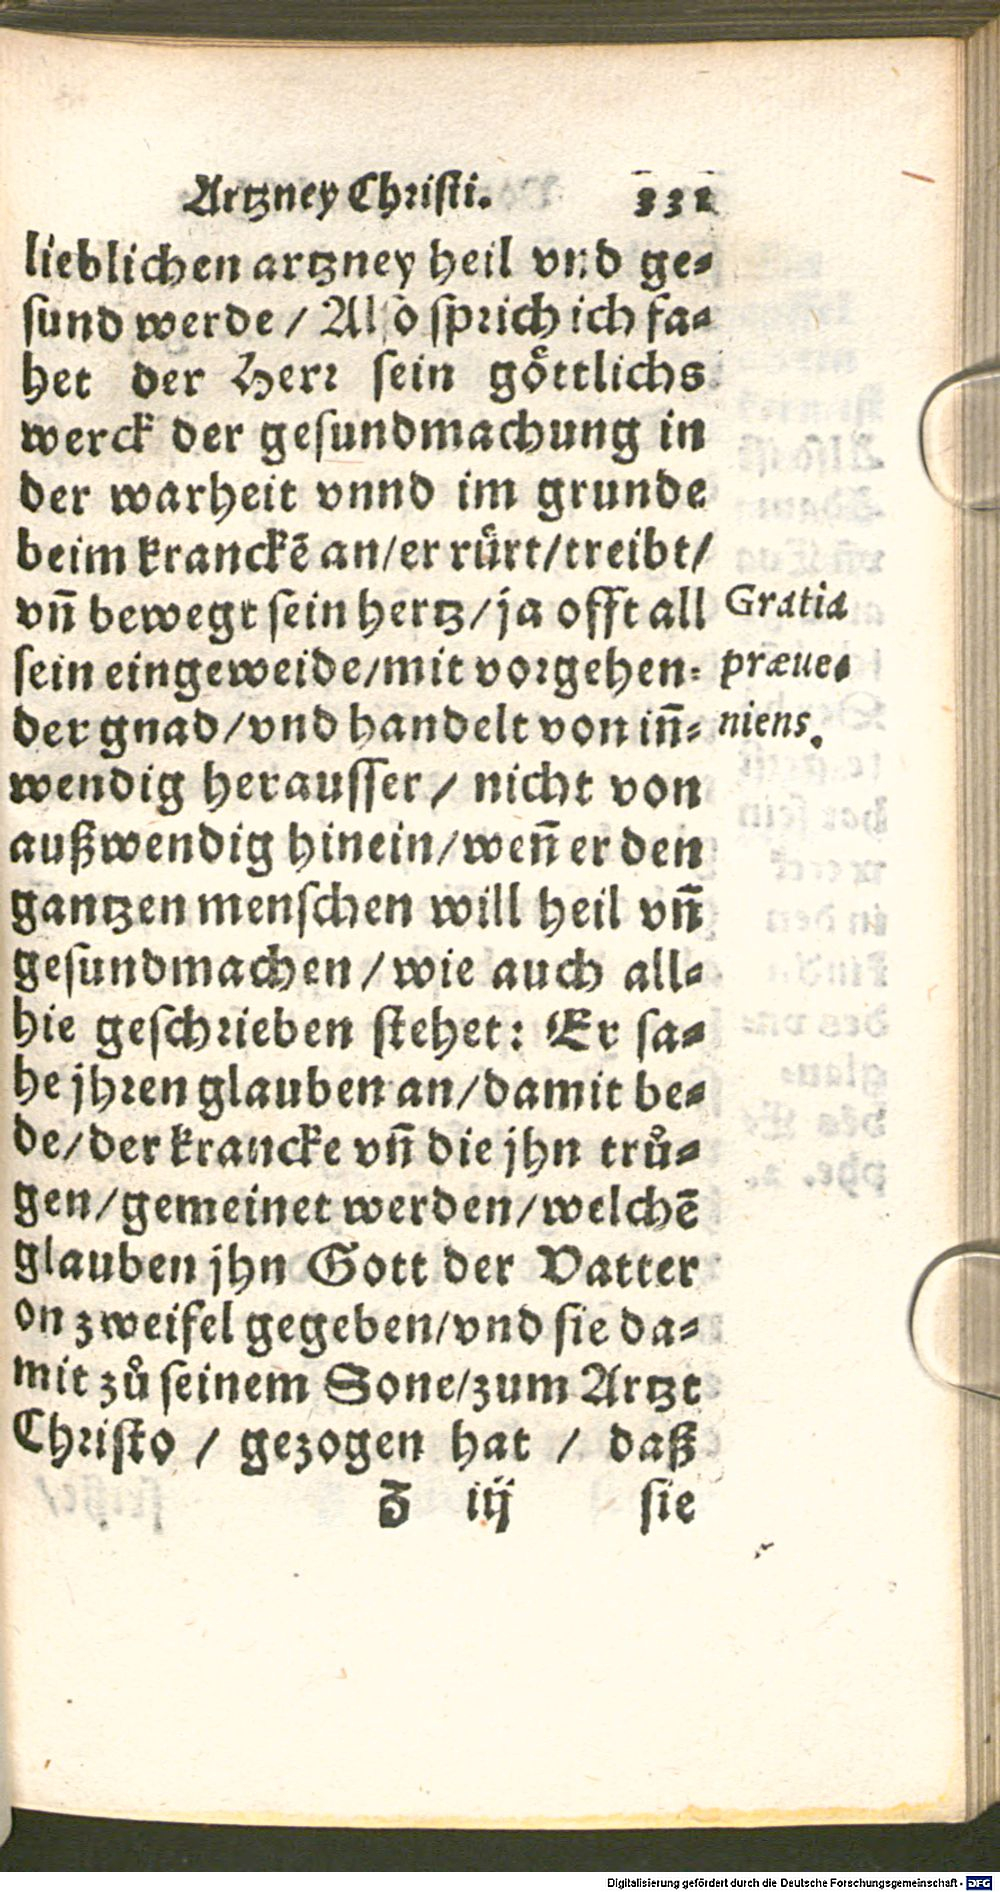 Artzney Christi. 331
lieblichen artzney heil vnd ge⸗
sund werde / Also sprich ich fa⸗
het der Herr sein goͤttlichs
werck der gesundmachung in
der warheit vnnd im grunde
beim kranckē an/er ruͤrt/treibt/
vn̄ bewegt sein hertz/ja offt all
Gratia
sein eingeweide/mit vorgehen⸗
præue⸗
der gnad/vnd handelt von in̄⸗
niens.
wendig herausser / nicht von
außwendig hinein/wen̄ er den
gantzen menschen will heil vn̄
gesundmachen / wie auch all⸗
hie geschrieben stehet: Er sa⸗
he jhren glauben an/damit be⸗
de/der krancke vn̄ die jhn truͦ⸗
gen/gemeinet werden/welchē
glauben jhn Gott der Vatter
on zweifel gegeben/vnd sie da⸗
mit zuͦ seinem Sone/zum Artzt
Christo / gezogen hat / daß
iij sie
Digitalisierung gefördert durch die Deutsche Forschungsgemeinschaft - DFG